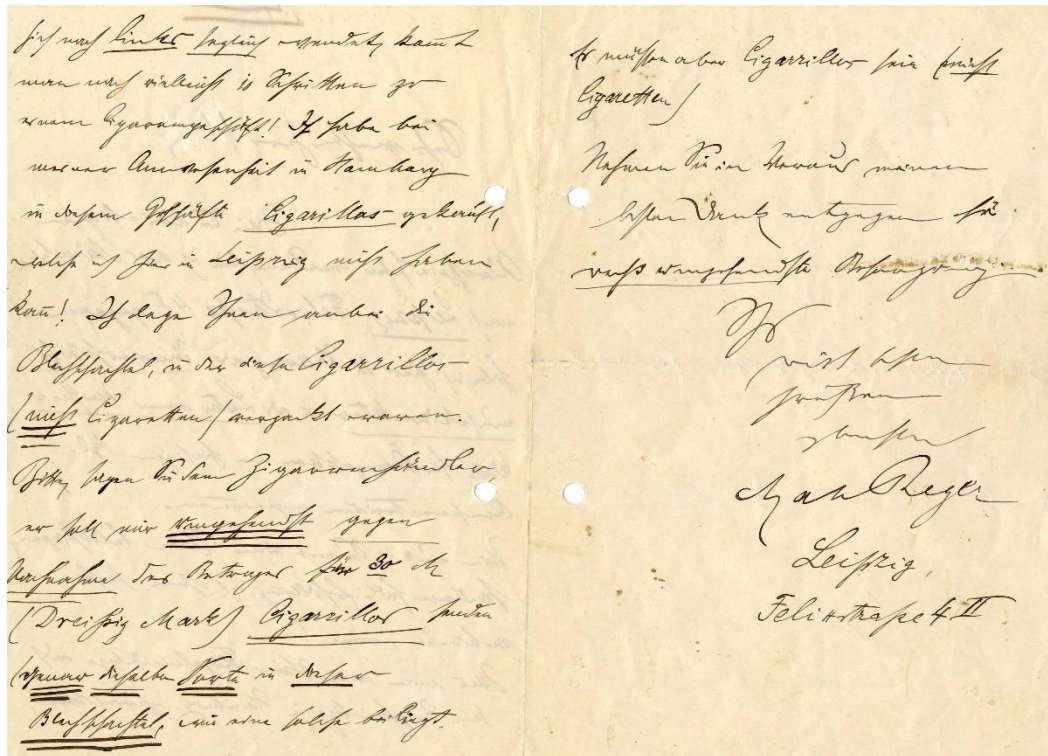 sich nach links sogleich wendet, kommt
man nach vielleicht 10 Schritten zu
einem Cigarrengeschäft! Ich habe bei
meiner Anwesenheit in Hamburg
in diesem Geschäfte Cigarillos gekauft,
welche ich hier in Leipzig nicht haben
kann! Ich lege Ihnen anbei die
Blechschachtel, in der diese Cigarrillos
(nicht Cigaretten) verpackt waren.
Bitte, sagen Sie dem Zigarrenhändler,
er soll mir umgehendst gegen
Nachnahme des Betrages für 30 M
(Dreißig Mark) Cigarrillos senden
(genau dieselbe Sorte in dieser
Blechschachtel, wie eine solche beiliegt.
Es müssen aber Cigarrillos sein (nicht
Cigaretten)
Nehmen Sie im Voraus meinen
besten Dank entgegen für
recht umgehendste Besorgung
Ihr
mit besten
Grüßen
Max Reger
Leipzig,
Felixstraße 4 II